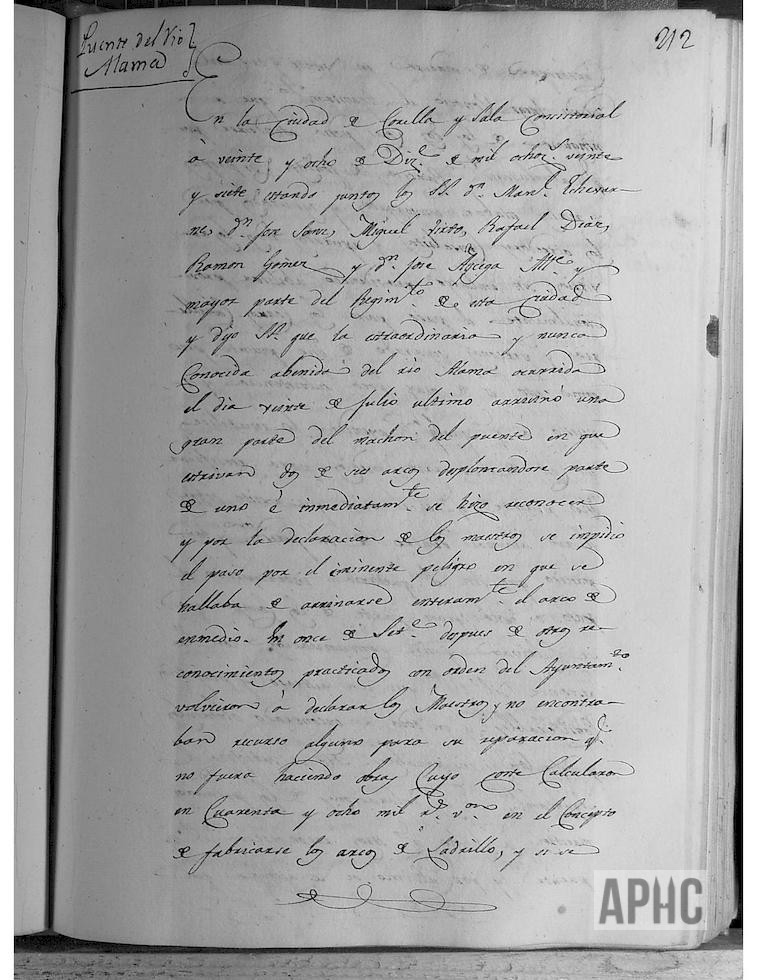 Puente del Rio
Alama
212
En la Ciudad de Corella y Sala Consistorial
à veinte y ocho de Diz.e de mil ochoz.s veinte
y siete estando juntos los SS.s d.n Man.l Echevar-
ne, d.n Jose Sanz, Miguel Virto, Rafael Diaz,
Ramon Gomez y d.n Jose Ayçega Alt.e y
mayor parte del Regim.to de esta Ciudad
y dijo SS.a que la extraordinaria y nunca
Conocida abenida del rio Alama ocurrida
el dia veinte de Julio ultimo arruinó una
gran parte del machon del puente en que
estrivan dos de sus arcos desplomandose parte
de uno è inmediatam.te se hizo reconocer
y por la declaracion de los maestros se impidio
el paso por el eminente peligro en que se
hallaba de arruinarse enteram.te el arco de
enmedio. En once de Set.e despues de otros re-
conocimientos practicados con orden del Ayuntam.to
volvieron à declarar los Maestros, no encontra-
ban recurso alguno para su reparacion q.e
no fuera haciendo obras Cuyo coste Calcularon
en Cuarenta y ocho mil r.s v.on en el Concepto
de fabricarse los arcos de Ladrillo, y si se
APHC